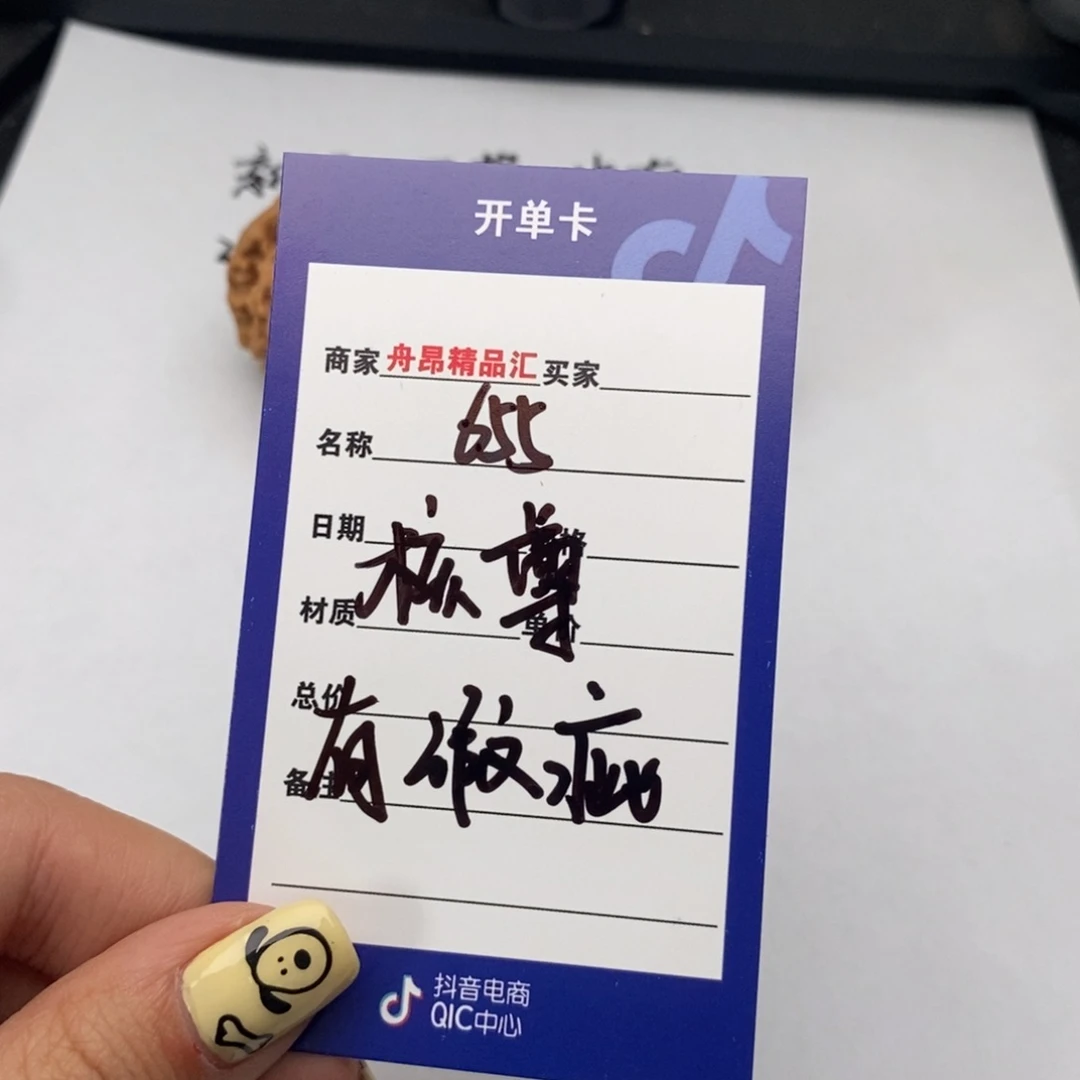 开单卡
商家 舟昂精品汇 买家
名称 655
日期
核尊
材质 单价
总价
有瑕疵
备注
抖音电商
QIC中心